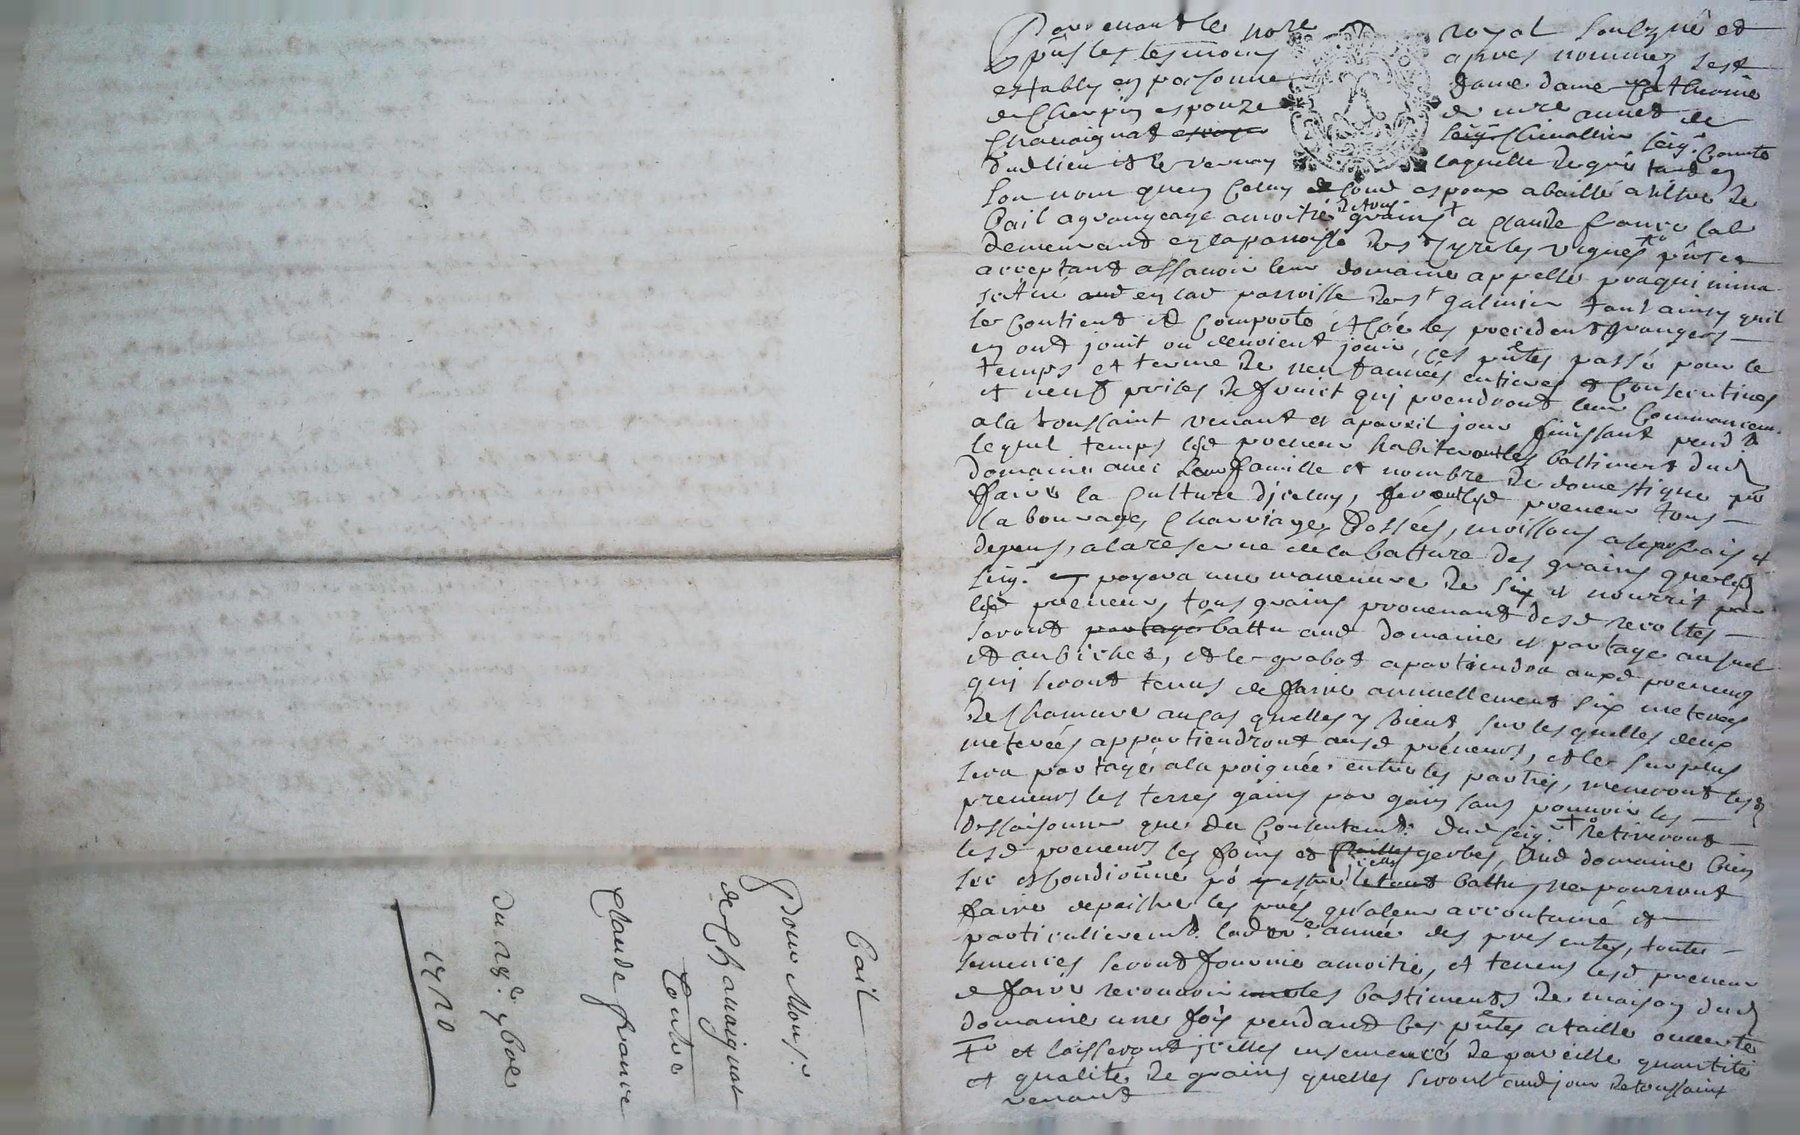 Bail
Pour Mons.r
de Chauaignat
Contre
Claude france
du 28.e 9bre
1720
Pardeuant le no.re royal soubz.né et
p̃ns les tesmoins apres nommez sest
estably en personne dame dame Catherine
de Cherpin espouze de mre annet de
Chauaignat seig.r Cheuallier seig.r Comte
dud lieu et le vernay laquelle de gré tant en
son nom quen celuy de sond espoux a baillé a tiltre de
bail a grangeage a moitié de tous grains + a Claude france lab
demeurant en la parroisse des
acceptant assauoir leur domaine appellé
scitué en lad parroisse de s.t galmier tout ainsy quil
se contient et comporte et que les precedents grangers
en ont jouit ou deuoient jouir, ces p̃ntes passé pour le
temps et terme de neuf années entieres et consecutiues
et neuf prises de fruict qui prendront leur commancem.
a la toussaint venant et a pareil jour finissant pend.t
lequel temps led preneur habiteront les bastiments dud
domaine auec leur famille et nombre de domestique po
faire la culture dicelluy, feront led preneur tous
labourages, charriages, fossés, moissons a ses frais et
depens, a la reserue de la batture des grains que led
seig.r payera une maneuure de six et nourrit par
led preneur, tous grains prouenant desd recoltes
seront battu aud domaine et partagé au
et au bichet, et le grabot apartiendra auxd preneurs
qui seront tenus de faire annuellement six meterées
de chanure au cas quelles y soient, sur lesquelles deux
meterées appartiendront ausd preneurs, et le surplus
sera partagé a la poignée entre les parties, meneront lesd
preneurs les terres gains par gain sans pouuoir les
dessaisonner que du consentem.t dud seig.r + retireront
lesd preneurs les foins et gerbes, dud domaine bien
sec et conditionné po y estre battu, ne pourront
faire depaistre les prés qu'aleur accoutumé et
particulierem.t lad der.e année des presentes, toutes
semences seront fournie a moitié, et tenus lesd preneur
de faire recouurir les bastiments de maison dud
domaine une fois pendant les p̃ntes a taille ouuerte
+ et laisseront icelles ensemencé de pareille quantité
et qualité de grains quelles seront aud jour de toussaint
venant